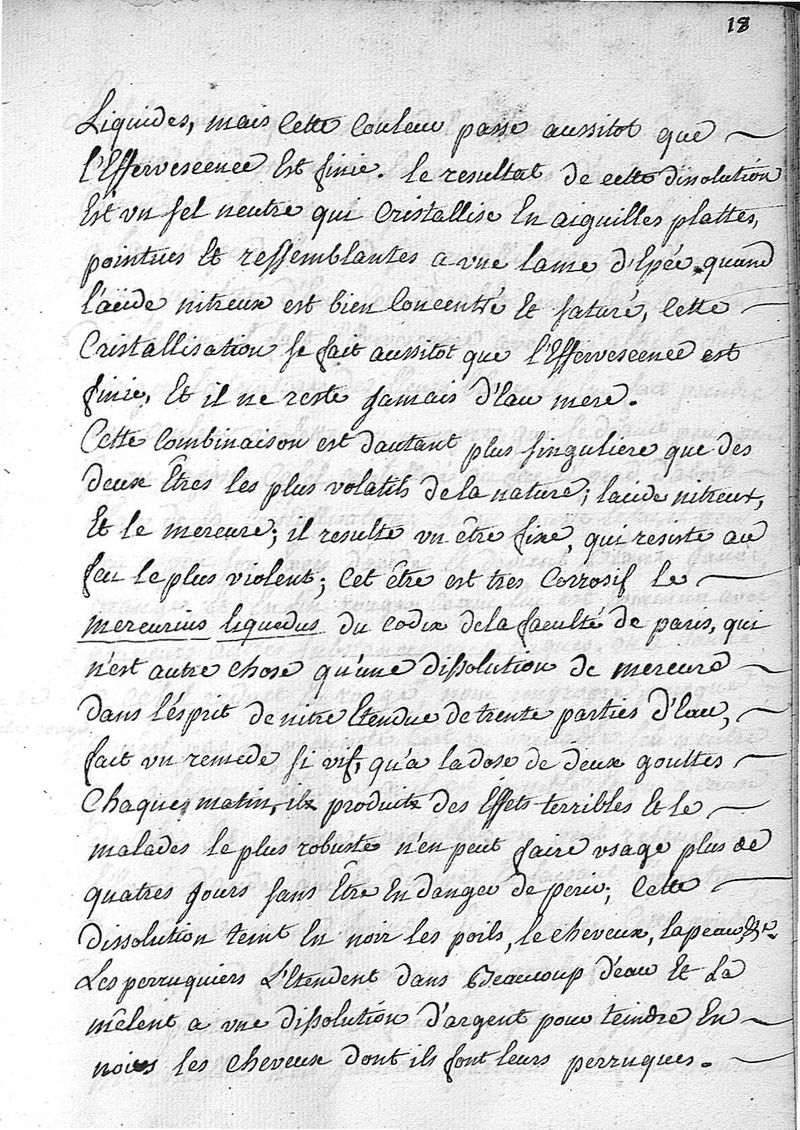 18
Liquides, mais Cette Couleur passe aussitot que
l'Effervescence Est finie. le resultat de cette dissolution
Est un sel neutre qui Cristallise En aiguilles plattes,
pointues Et ressemblantes a vne lame d'Epée quand
l'acide nitreux est bien Concentré Et saturé, Cette
Cristallisation se fait aussitot que l'Effervescence est
finie, Et il ne reste jamais d'Eau mere.
Cette Combinaison est dautant plus singuliere que des
deux Êtres les plus volatils de la nature; lacide nitreux,
Et le mercure; il resulte vn être fixe, qui resiste au
feu le plus violent; Cet être est tres Corrosif le
mercurius liquedus du Codix dela faculté de paris, qui
n'est autre Chose qu'une dissolution de mercure
dans l'ésprit de nitre Etendue de trente parties d'Eau,
fait vn remede si vif, qu'a la dose de deux gouttes
Chaques matin, il produit des Éffets terribles Et le
malades le plus robuste n'en peut faire vsage plus de
quatres jours sans Être En danger de perir; Cette
dissolution teint En noir les poils, le cheveux, la peau, &c.
Les perruquiers L'Etendent dans Beaucoup d'eau Et La
mêlent a vne dissolution d'argent pour teindre En
noirs les Cheveux dont ils font leurs perruques.